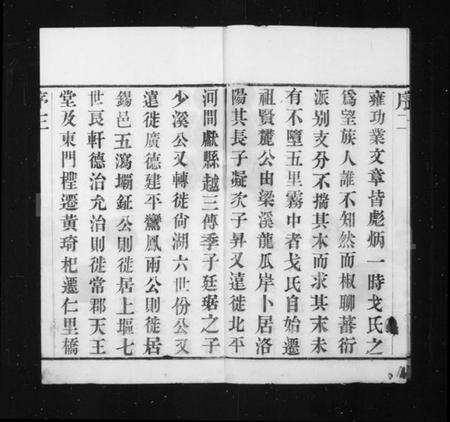 序二
雍功業文章皆彪炳一時戈氏之
爲望族人誰不知然而椒聊蕃衍
派别支分不揣其本而求其末未
有不墮五里霧中者戈氏自始遷
祖賢麓公由梁溪龍瓜岸卜居洛
陽其長子凝次子昇又遠徙北平
河間獻縣越三傳季子廷琚之子
少溪公又轉徙尙湖六世份公又
遠徙廣德建平鸞鳳兩公則徙居
錫邑五瀉壩鉦公則徙居上塸七
世良軒德治允治則徙常郡天王
堂及東門櫻遷黃琦杞遷仁里橋
序三